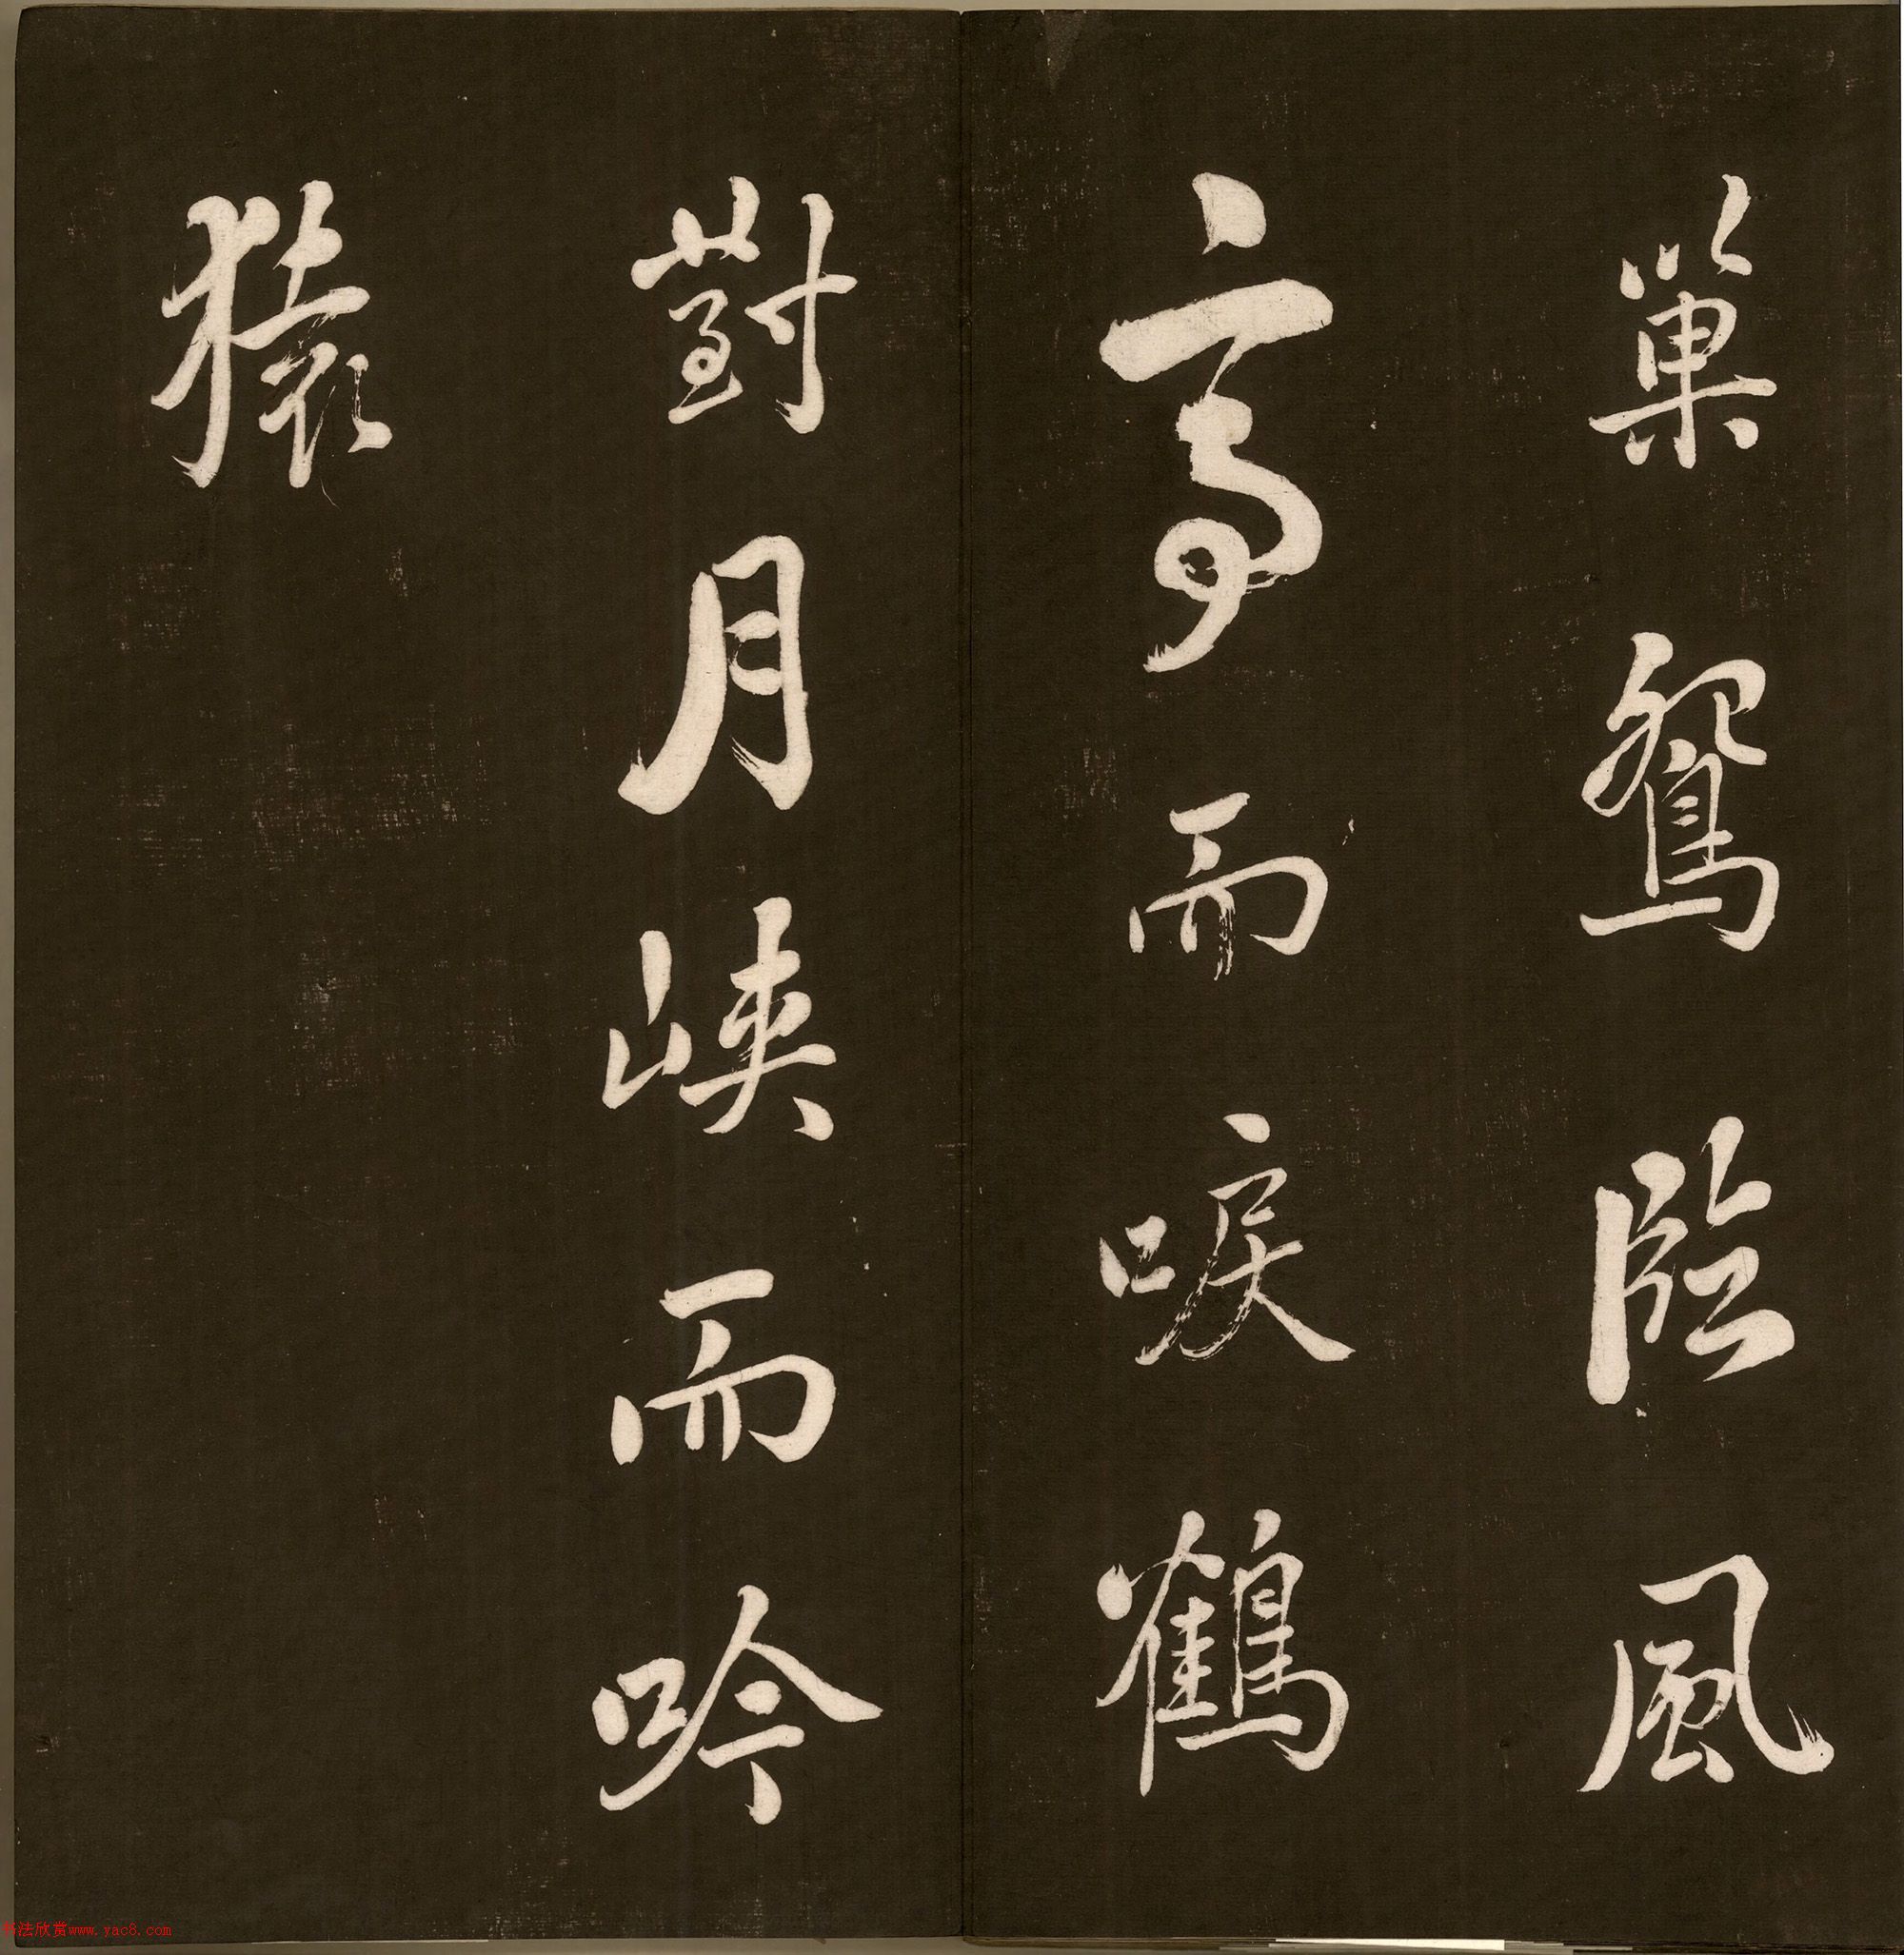 巢鴛臨風
亭而唳鶴
對月峽而吟
猿
书法欣赏www.yac8.com